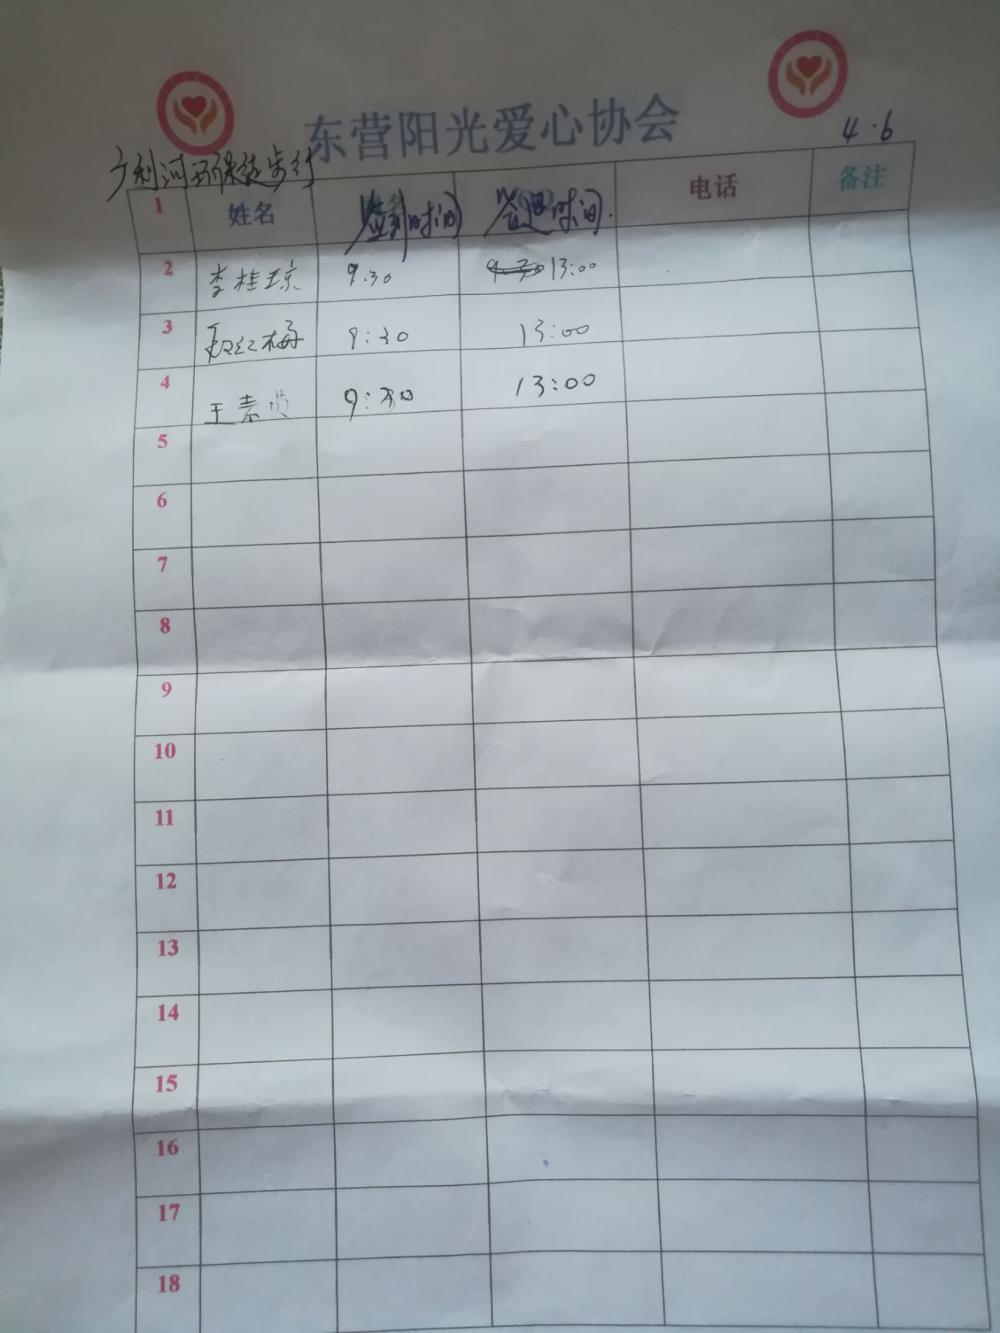 东营阳光爱心协会
4.6
广利河环保徒步行
1 姓名 签到时间 签退时间. 电话 备注
2 李桂琼 9.30 13:00
3 红梅 9:30 13:00
4 王素 9:30 13:00
5
6
7
8
9
10
11
12
13
14
15
16
17
18